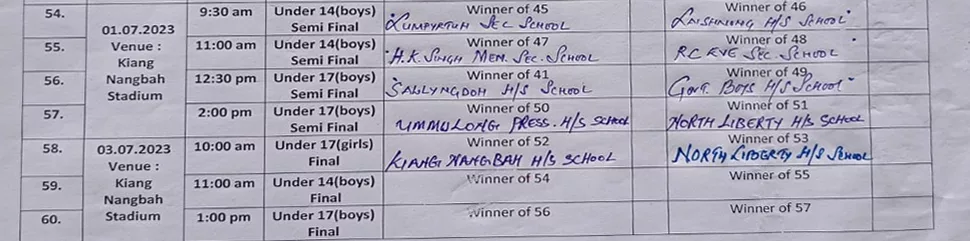 54. 01.07.2023 Venue : Kiang Nangbah Stadium 9:30 am Under 14(boys) Semi Final Winner of 45 Winner of 46
SEC SCHOOL H/S SCHOOL
55. 11:00 am Under 14(boys) Semi Final Winner of 47 Winner of 48
H.K. SINGH MEM. SEC. SCHOOL RC EVE SEC. SCHOOL
56. 12:30 pm Under 17(boys) Semi Final Winner of 41 Winner of 49
H/S SCHOOL GOVT. BOYS H/S SCHOOL
57. 2:00 pm Under 17(boys) Semi Final Winner of 50 Winner of 51
UMMULONG PRESS. H/S SCHOOL NORTH LIBERTY H/S SCHOOL
58. 03.07.2023 Venue : Kiang Nangbah Stadium 10:00 am Under 17(girls) Final Winner of 52 Winner of 53
KIANG NANGBAH H/S SCHOOL NORTH LIBERTY H/S SCHOOL
59. 11:00 am Under 14(boys) Final Winner of 54 Winner of 55
60. 1:00 pm Under 17(boys) Final Winner of 56 Winner of 57